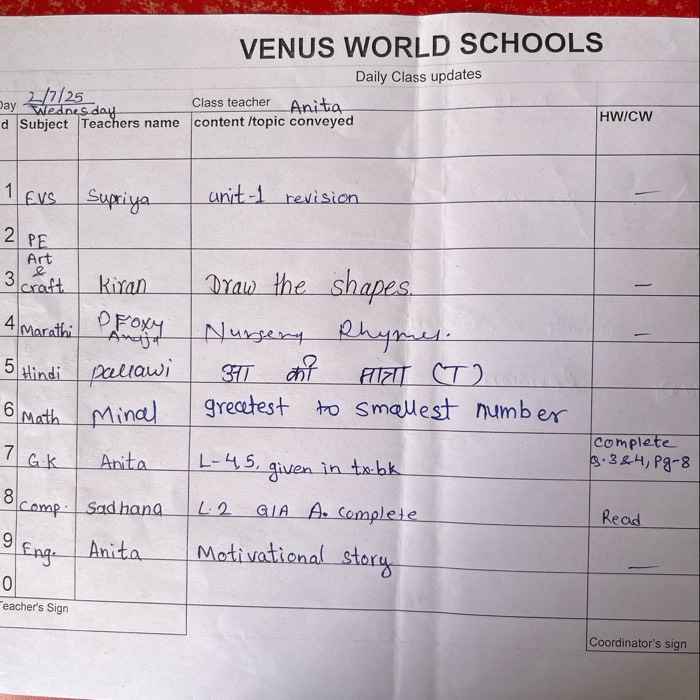 VENUS WORLD SCHOOLS
Daily Class updates
Day 2/7/25 Class teacher Anita
Wednesday
d Subject Teachers name content /topic conveyed HW/CW
1 EVS Supriya unit-1 revision —
2 PE
3 Art & craft Kiran Draw the shapes. —
4 Marathi Proxy Anuja Nursery Rhymes. —
5 Hindi pallawi आ की मात्रा (ा)
6 Math Minal greatest to smallest number
7 G.K Anita L-4,5, given in tx.bk complete Q.3&4, Pg-8
8 Comp. Sadhana L.2 Q/A A. complete Read
9 Eng. Anita Motivational story —
0
Teacher's Sign
Coordinator's sign